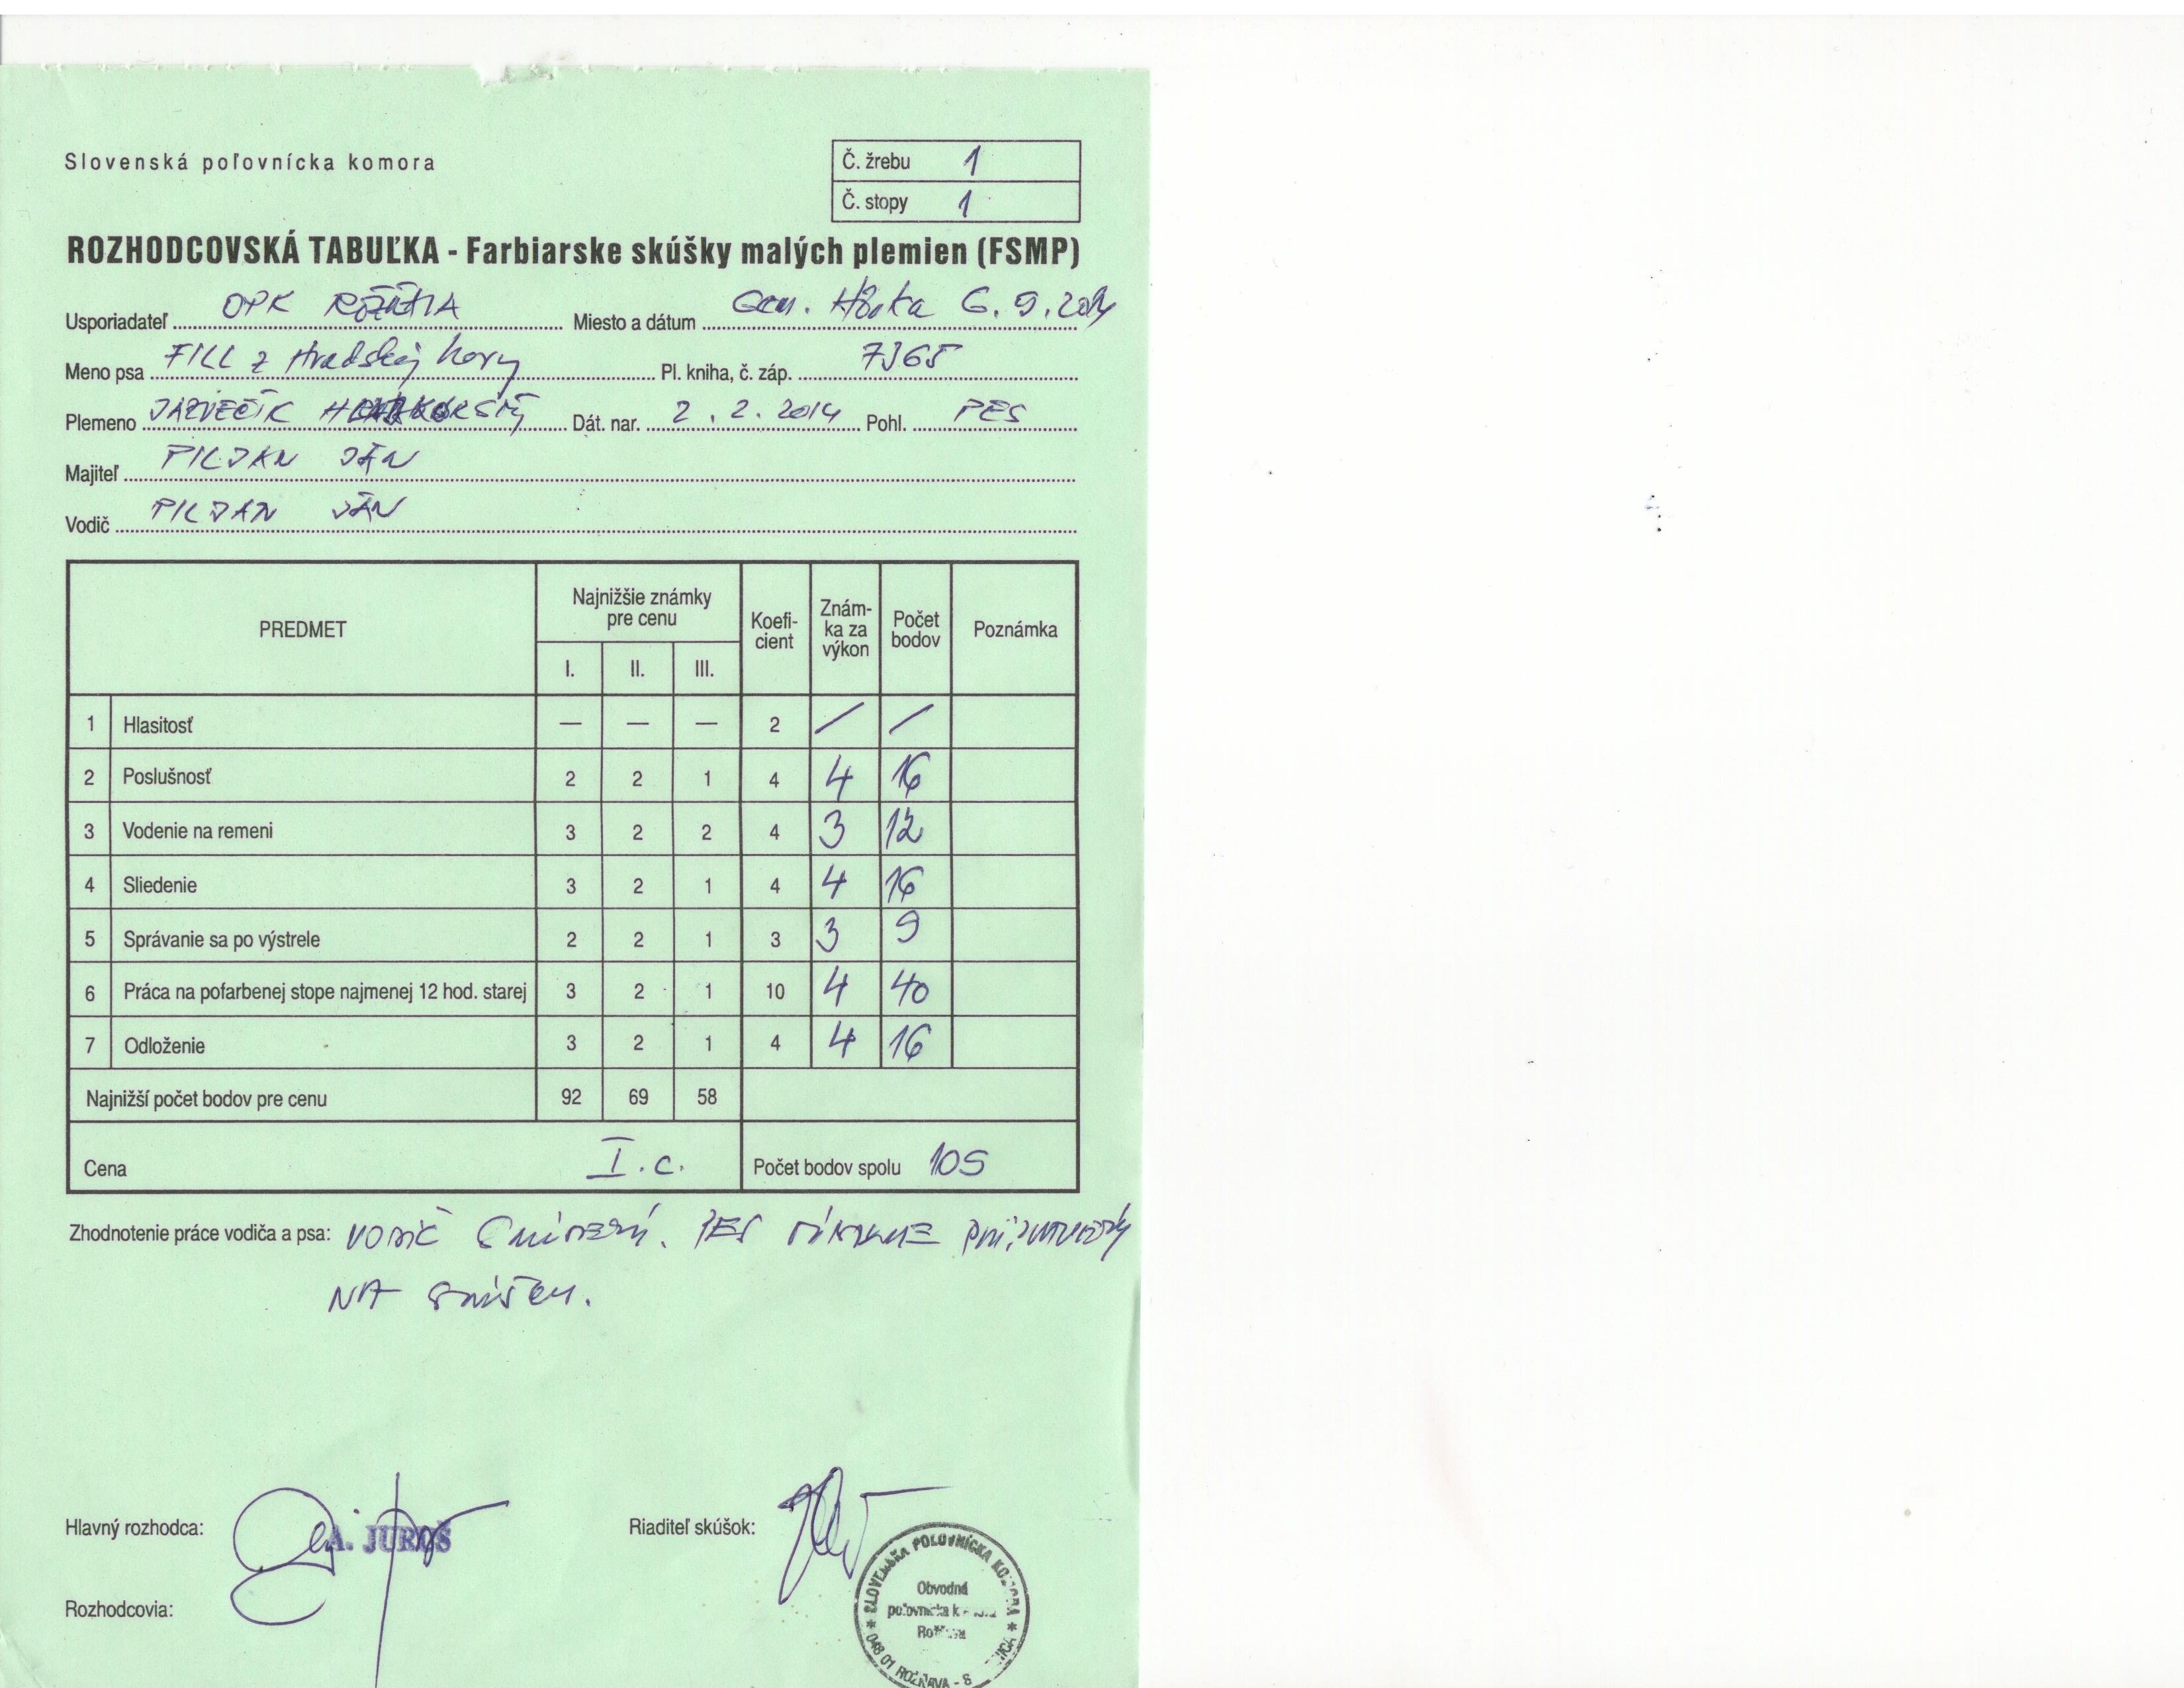 Slovenská poľovnícka komora
Č. žrebu 1
Č. stopy 1
ROZHODCOVSKÁ TABUĽKA - Farbiarske skúšky malých plemien (FSMP)
Usporiadateľ OPK Miesto a dátum Gem. Hôrka 6. 9. 2014
Meno psa FILL z Hradskej hory Pl. kniha, č. záp. 7365
Plemeno JAZVEČÍK Dát. nar. 2. 2. 2014 Pohl. PES
Majiteľ PILJAN JÁN
Vodič PILJAN JÁN
PREDMET Najnižšie známky pre cenu Koefi-cient Znám-ka za výkon Počet bodov Poznámka
I. II. III.
1 Hlasitosť — — — 2 / /
2 Poslušnosť 2 2 1 4 4 16
3 Vodenie na remeni 3 2 2 4 3 12
4 Sliedenie 3 2 1 4 4 16
5 Správanie sa po výstrele 2 2 1 3 3 9
6 Práca na pofarbenej stope najmenej 12 hod. starej 3 2 1 10 4 40
7 Odloženie 3 2 1 4 4 16
Najnižší počet bodov pre cenu 92 69 58
Cena I. c. Počet bodov spolu 109
Zhodnotenie práce vodiča a psa: VODIČ PES
NA
Hlavný rozhodca: A. JUROŠ Riaditeľ skúšok:
Rozhodcovia:
SLOVENSKÁ POĽOVNÍCKA KOMORA
Obvodná
poľovnícka
Rožňava
048 01 ROŽŇAVA - 8